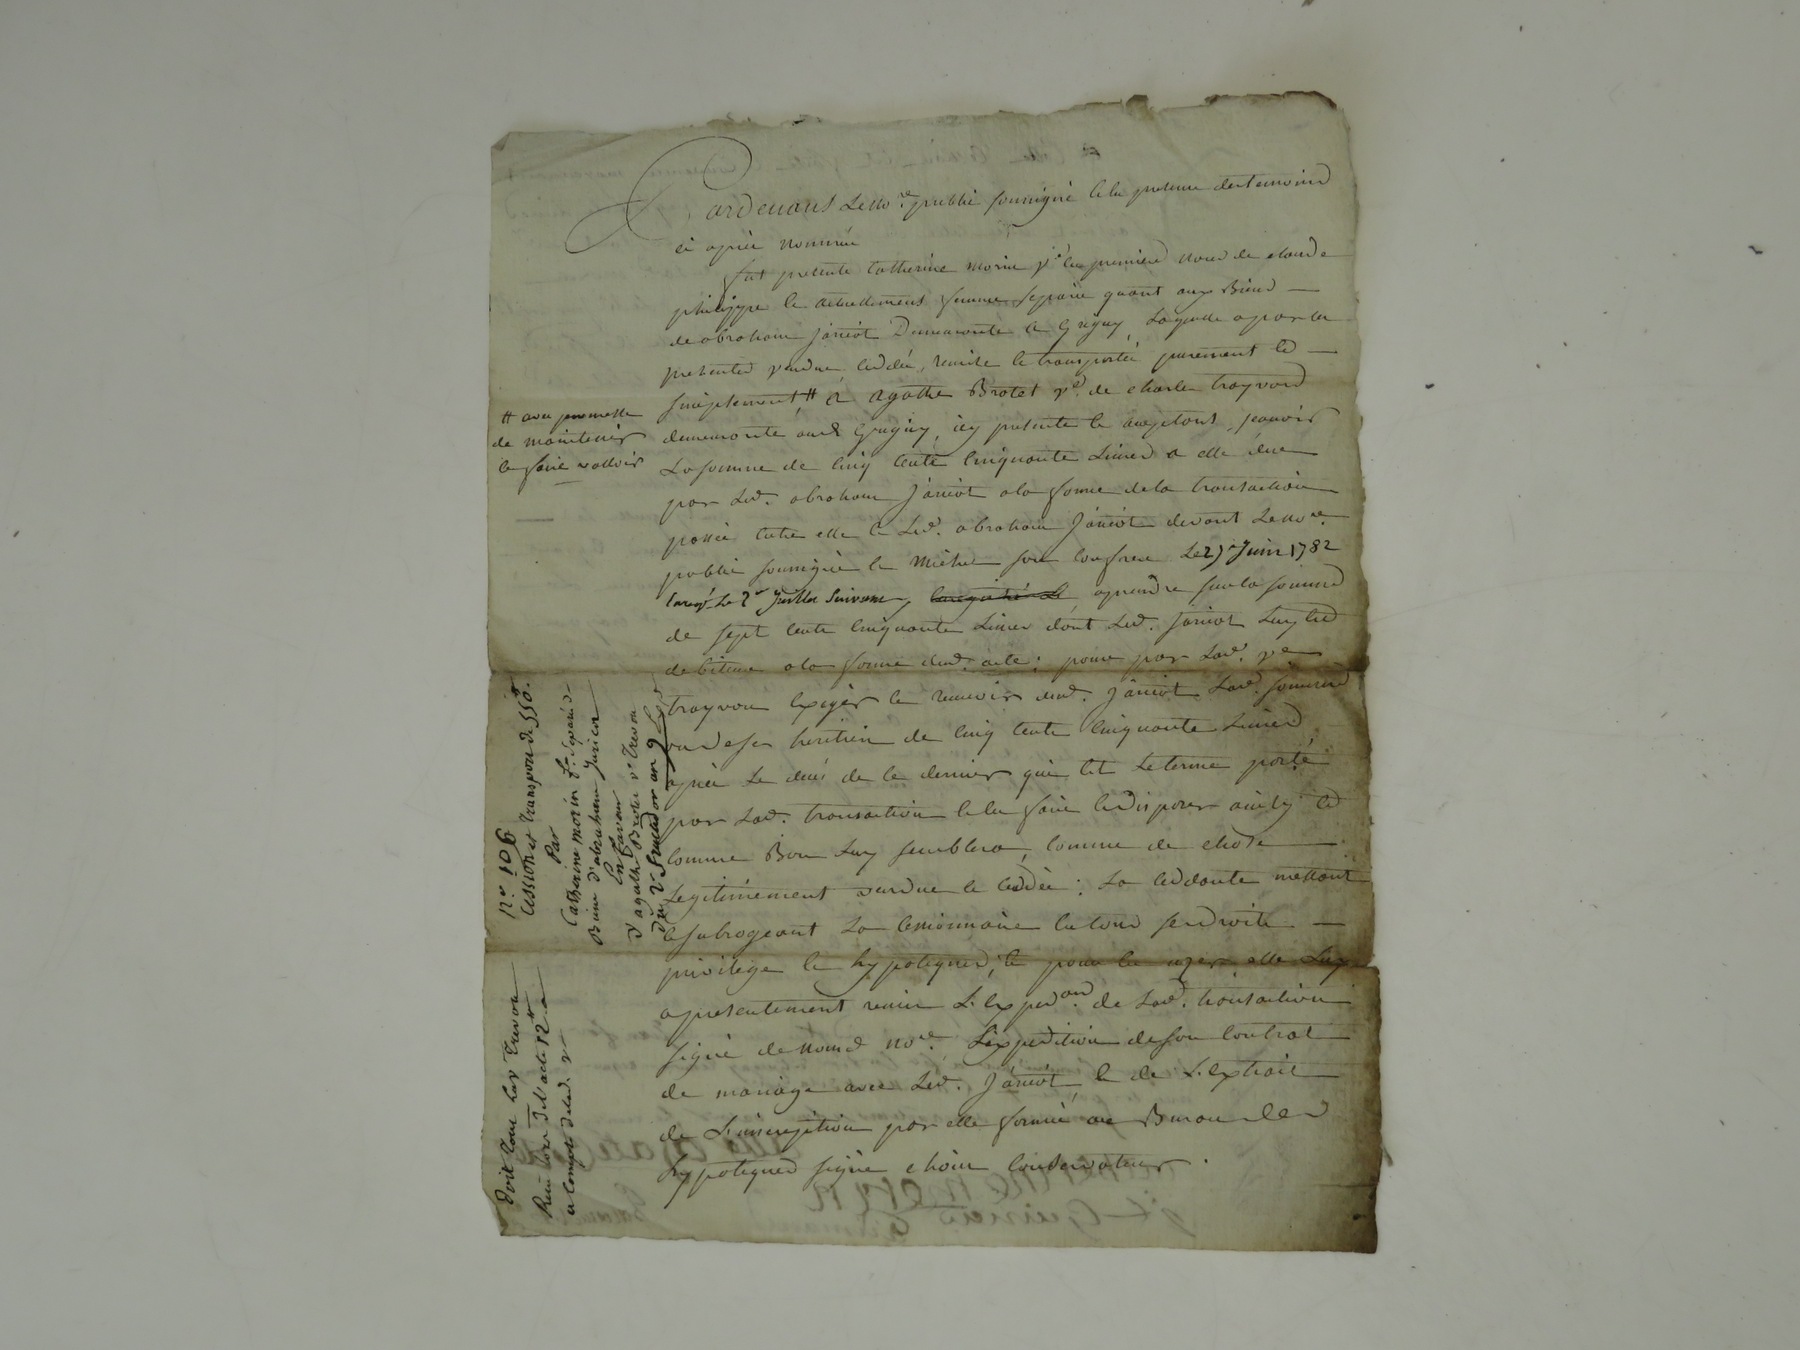 Pardevant Le no.re public soussigné & en presence des temoins
ci après nommés
fut presente Catherine morin v.e en premiere nôces de claude
philippe & actuellement femme séparée quant aux Biens
de abraham janiot Demeurante a Grigny, Laquelle a par les
presentes vendue, cédée, remise & transportée purement et
simplement # à agathe Brotet v.e de charle trayvoux
demeurante aud. Grigny, icy presente & aceptant, scavoir
La somme de cinq cents cinquante Livres a elle düe
par Led. abraham Janiot a la forme de la transaction
passée entre elle & Led. abraham Janiot devant Le no.re
public soussigné & Michel son confrere Le 27 Juin 1782
Enreg.é Le 2.e Juillet Suivant, a prendre sur la somme
de sept cents cinquante Livres dont Led. Janiot Luy est
debiteur a la forme dud. acte; pour par Lad. v.e
trayvou exiger & recevoir dud. Janiot Lad. somme
ou de ses heritiers de cinq cents cinquante Livres
après Le decès de ce dernier qui est Le terme porté
par Lad. transaction & en faire & disposer ainsy et
comme Bon Luy semblera, comme de chose
Legitimement vendue & cédée: La cedante mettant
& subrogeant La cessionnaire en tous ses droits
privilege & hypoteques; & pour en user, elle Luy
a presentement remis L'exped.on de Lad. transaction
signé de nousd. no.re L'expedition de son contrat
de mariage avec Led. Janiot, & de L'extrait
de L'inscription par elle formée au Bureau des
hypoteques signé conservateur.
# avec promesse
de maintenir
& faire valloir
n.o 106
Cession et transport de 550.
Par
Catherine morin f.e separée de
Biens d'abraham Janiot
En faveur
d'agathe Brotet v.e Trevou
Doit lad. Trevou